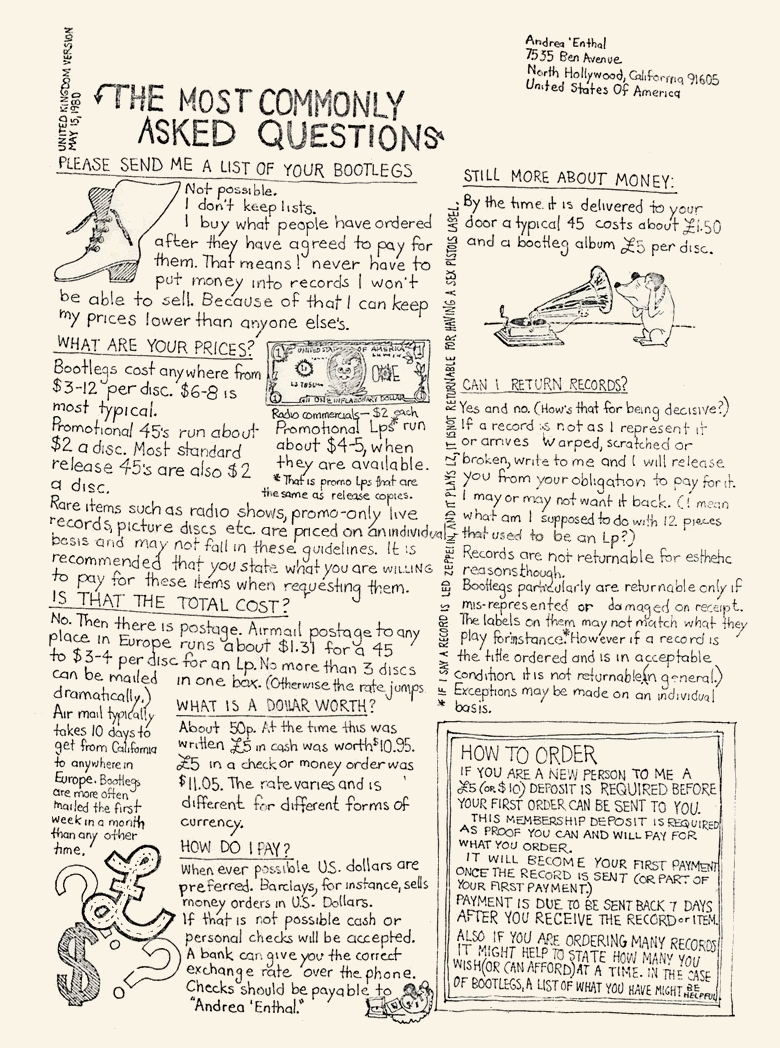 UNITED KINGDOM VERSION
MAY 15, 1980
Andrea 'Enthal
7535 Ben Avenue
North Hollywood, California 91605
United States Of America
THE MOST COMMONLY
ASKED QUESTIONS
PLEASE SEND ME A LIST OF YOUR BOOTLEGS
Not possible.
I don't keep lists.
I buy what people have ordered
after they have agreed to pay for
them. That means I never have to
put money into records I won't
be able to sell. Because of that I can keep
my prices lower than anyone else's.
WHAT ARE YOUR PRICES?
Bootlegs cost anywhere from
$3-12 per disc. $6-8 is
most typical.
Promotional 45's run about
$2 a disc. Most standard
release 45's are also $2
a disc.
UNITED STATES OF AMERICA
ONE
ONE INFLATIONARY DOLLAR
Radio commercials—$2 each
Promotional Lps* run
about $4-5, when
they are available.
*That is promo Lps that are
the same as release copies.
Rare items such as radio shows, promo-only live
records, picture discs etc. are priced on an individual
basis and may not fall in these guidelines. It is
recommended that you state what you are WILLING
to pay for these items when requesting them.
IS THAT THE TOTAL COST?
No. Then there is postage. Airmail postage to any
place in Europe runs about $1.31 for a 45
to $3-4 per disc for an Lp. No more than 3 discs
can be mailed in one box. (Otherwise the rate jumps
dramatically.)
Air mail typically
takes 10 days to
get from California
to anywhere in
Europe. Bootlegs
are more often
mailed the first
week in a month
than any other
time.
WHAT IS A DOLLAR WORTH?
About 50p. At the time this was
written £5 in cash was worth $10.95.
£5 in a check or money order was
$11.05. The rate varies and is
different for different forms of
currency.
HOW DO I PAY?
When ever possible U.S. dollars are
preferred. Barclays, for instance, sells
money orders in U.S. Dollars.
If that is not possible cash or
personal checks will be accepted.
A bank can give you the correct
exchange rate over the phone.
Checks should be payable to
"Andrea 'Enthal."
? £ ? $ ?
STILL MORE ABOUT MONEY:
By the time it is delivered to your
door a typical 45 costs about £1.50
and a bootleg album £5 per disc.
CAN I RETURN RECORDS?
Yes and no. (How's that for being decisive?)
If a record is not as I represent it
or arrives warped, scratched or
broken, write to me and I will release
you from your obligation to pay for it.
I may or may not want it back. (I mean
what am I supposed to do with 12 pieces
that used to be an Lp?)
Records are not returnable for esthetic
reasons though.
Bootlegs particularly are returnable only if
mis-represented or damaged on receipt.
The labels on them may not match what they
play for instance.* However if a record is
the title ordered and is in acceptable
condition it is not returnable (in general.)
Exceptions may be made on an individual
basis.
* IF I SAY A RECORD IS LED ZEPPELIN, AND IT PLAYS LZ, IT IS NOT RETURNABLE FOR HAVING A SEX PISTOLS LABEL.
HOW TO ORDER
IF YOU ARE A NEW PERSON TO ME A
£5 (OR $10) DEPOSIT IS REQUIRED BEFORE
YOUR FIRST ORDER CAN BE SENT TO YOU.
THIS MEMBERSHIP DEPOSIT IS REQUIRED
AS PROOF YOU CAN AND WILL PAY FOR
WHAT YOU ORDER.
IT WILL BECOME YOUR FIRST PAYMENT
ONCE THE RECORD IS SENT (OR PART OF
YOUR FIRST PAYMENT.)
PAYMENT IS DUE TO BE SENT BACK 7 DAYS
AFTER YOU RECEIVE THE RECORD or ITEM.
ALSO IF YOU ARE ORDERING MANY RECORDS
IT MIGHT HELP TO STATE HOW MANY YOU
WISH (OR CAN AFFORD) AT A TIME. IN THE CASE
OF BOOTLEGS, A LIST OF WHAT YOU HAVE MIGHT BE
HELPFUL